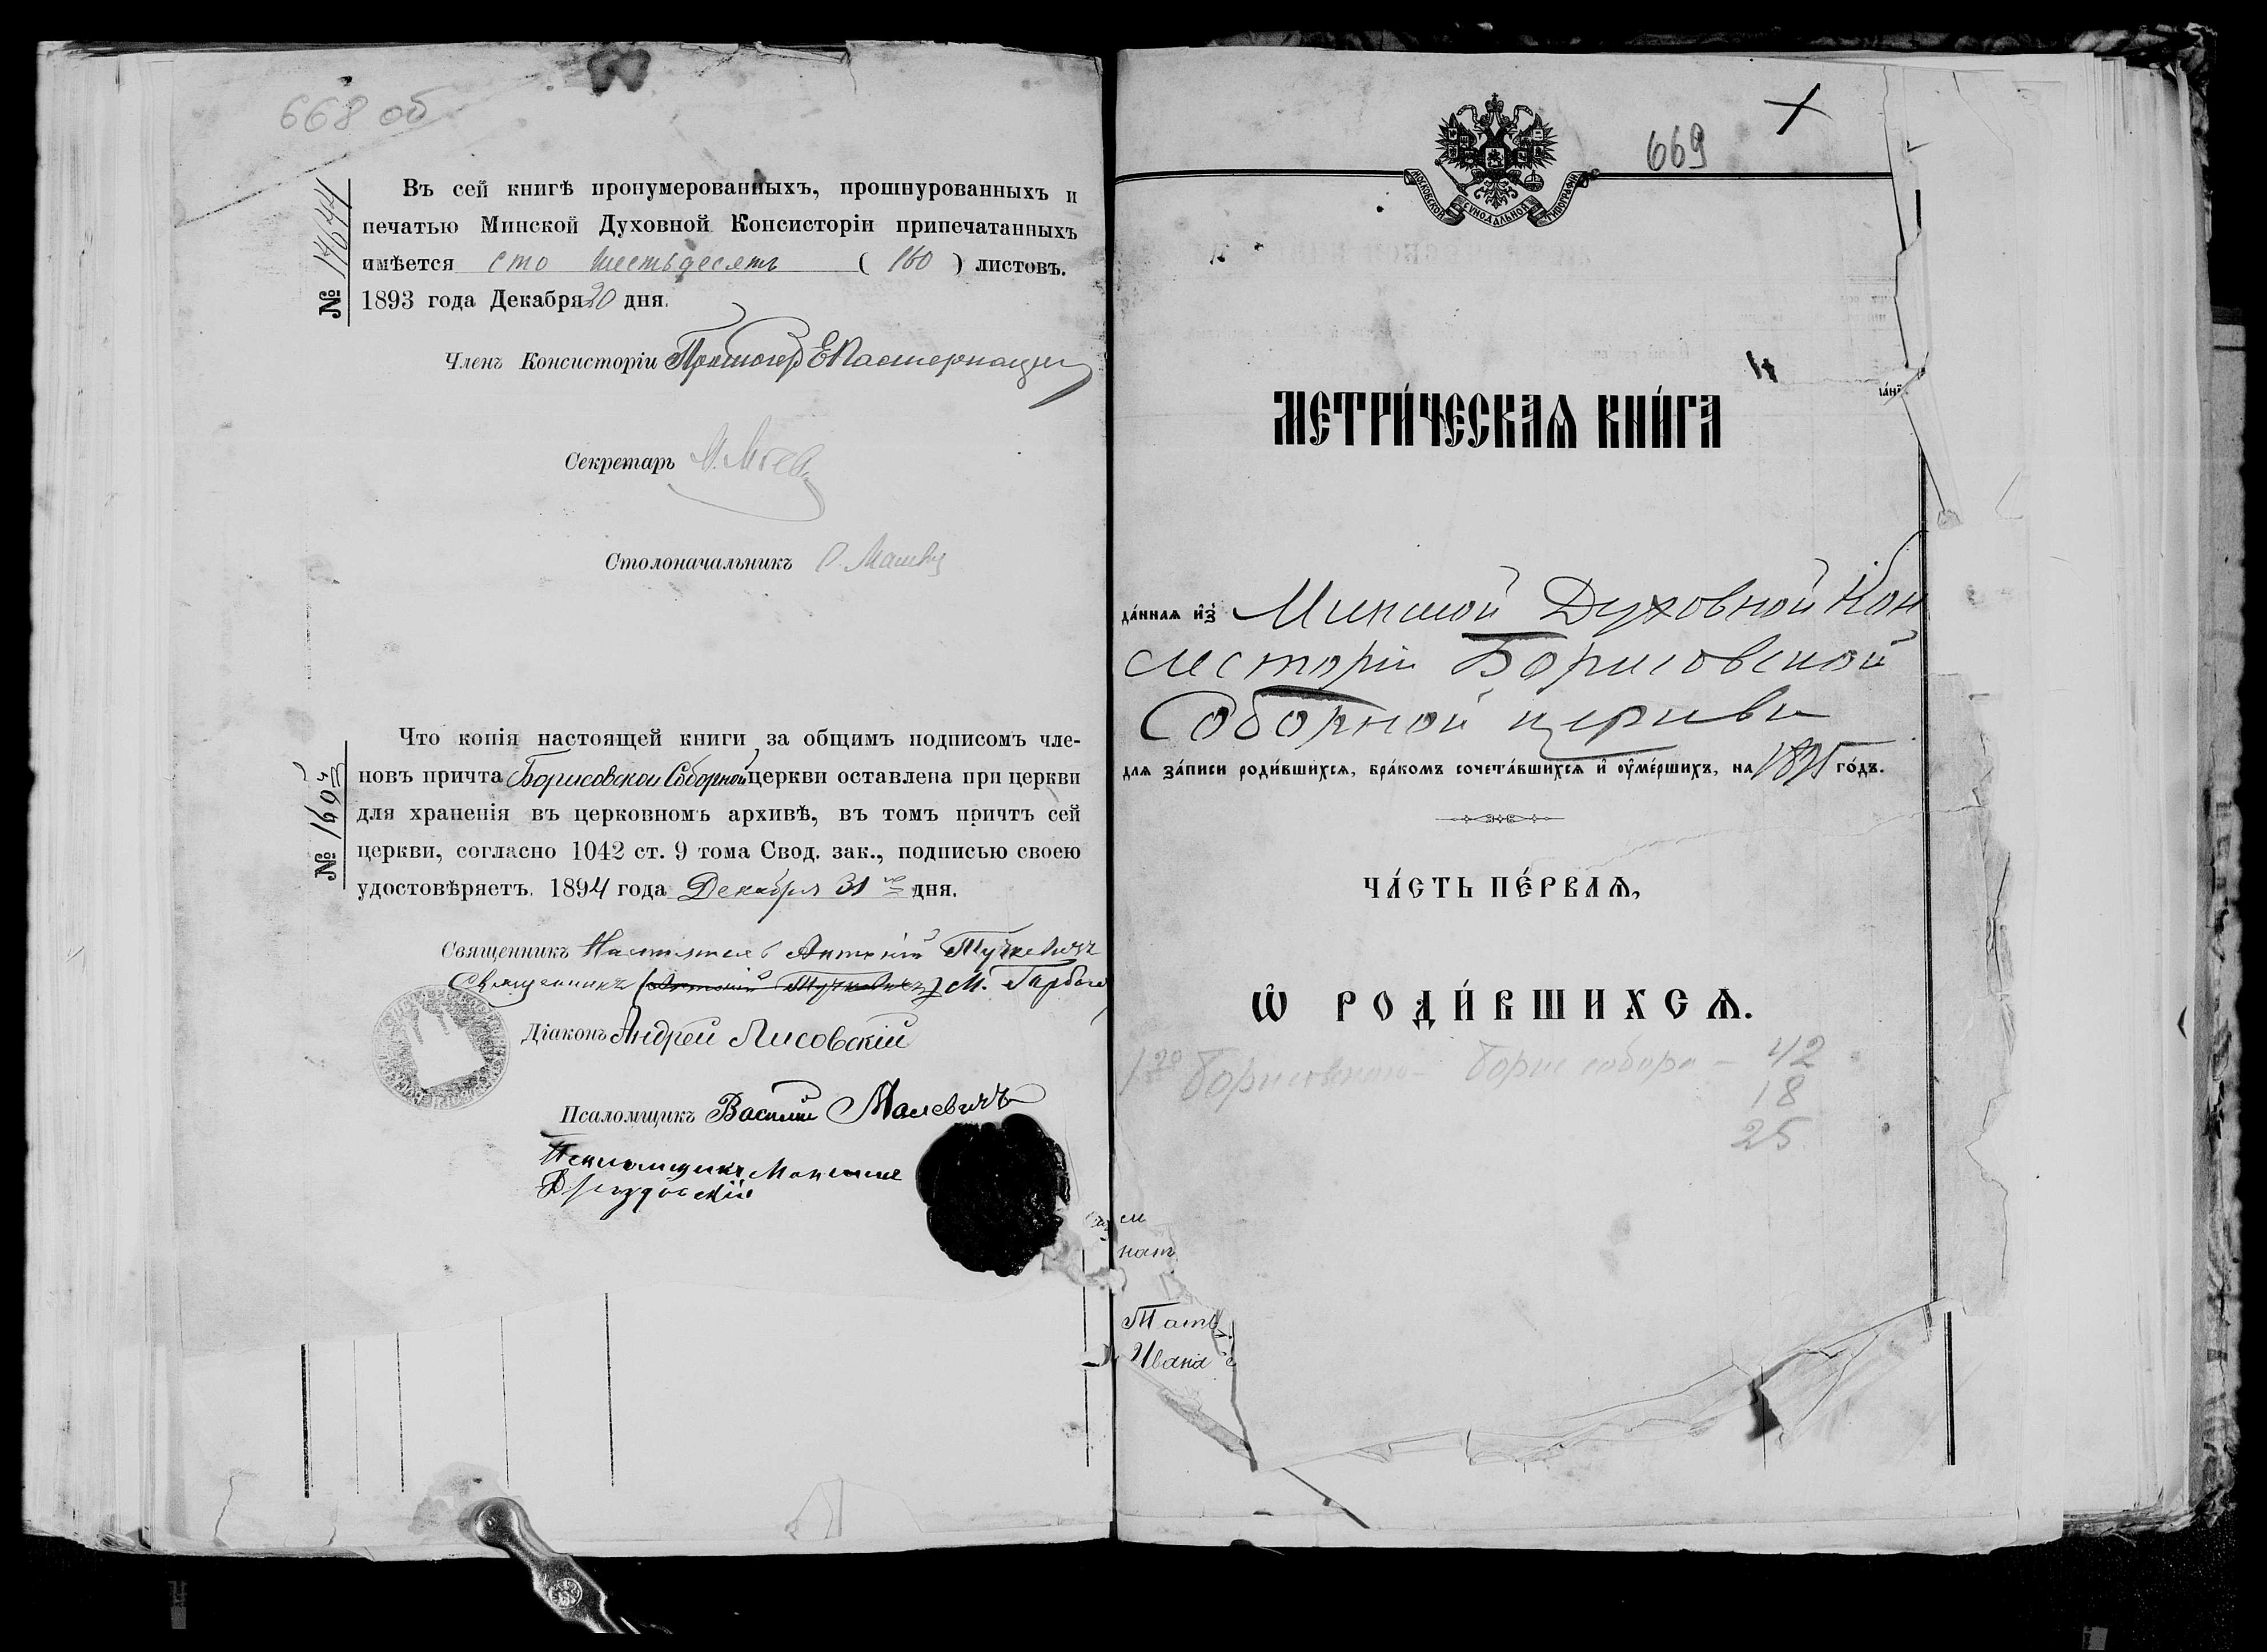 668 об
№ 14644
Въ сей книгѣ пронумерованныхъ, прошнурованныхъ и
печатью Минской Духовной Консисторіи припечатанныхъ
имѣется сто шестьдесятъ ( 160 ) листовъ.
1893 года Декабря 20 дня.
Членъ Консисторіи
Секретарь
Столоначальникъ
№ 169
Что копія настоящей книги за общимъ подписомъ чле-
новъ причта Борисовской Соборной церкви оставлена при церкви
для храненія въ церковномъ архивѣ, въ томъ причтъ сей
церкви, согласно 1042 ст. 9 тома Свод. зак., подписью своею
удостовѣряетъ. 1894 года Декабря 31 дня.
Священникъ Настоятель Антоній
Священникъ М.
Діаконъ Андрей Лисовскій
Псаломщикъ Василій Малевичъ
Псаломщикъ
669
МОСКОВСКОЙ СУНОДАЛЬНОЙ ТИПОГРАФІИ
МЕТРИ́ЧЕСКАѦ КНИ́ГА
да́ннаѧ и҆з̾ Минской Духовной Кон
систоріи Борисовской
Соборной церкви
длѧ за́писи роди́вшихсѧ, бра́комъ сочета́вшихсѧ и҆ ᲂу҆ме́ршихъ, на 1895 го́дъ.
ЧА́СТЬ ПЕ́РВАѦ,
Ѡ҆ РОДИ́ВШИХСѦ.
42
18
25
Ивана